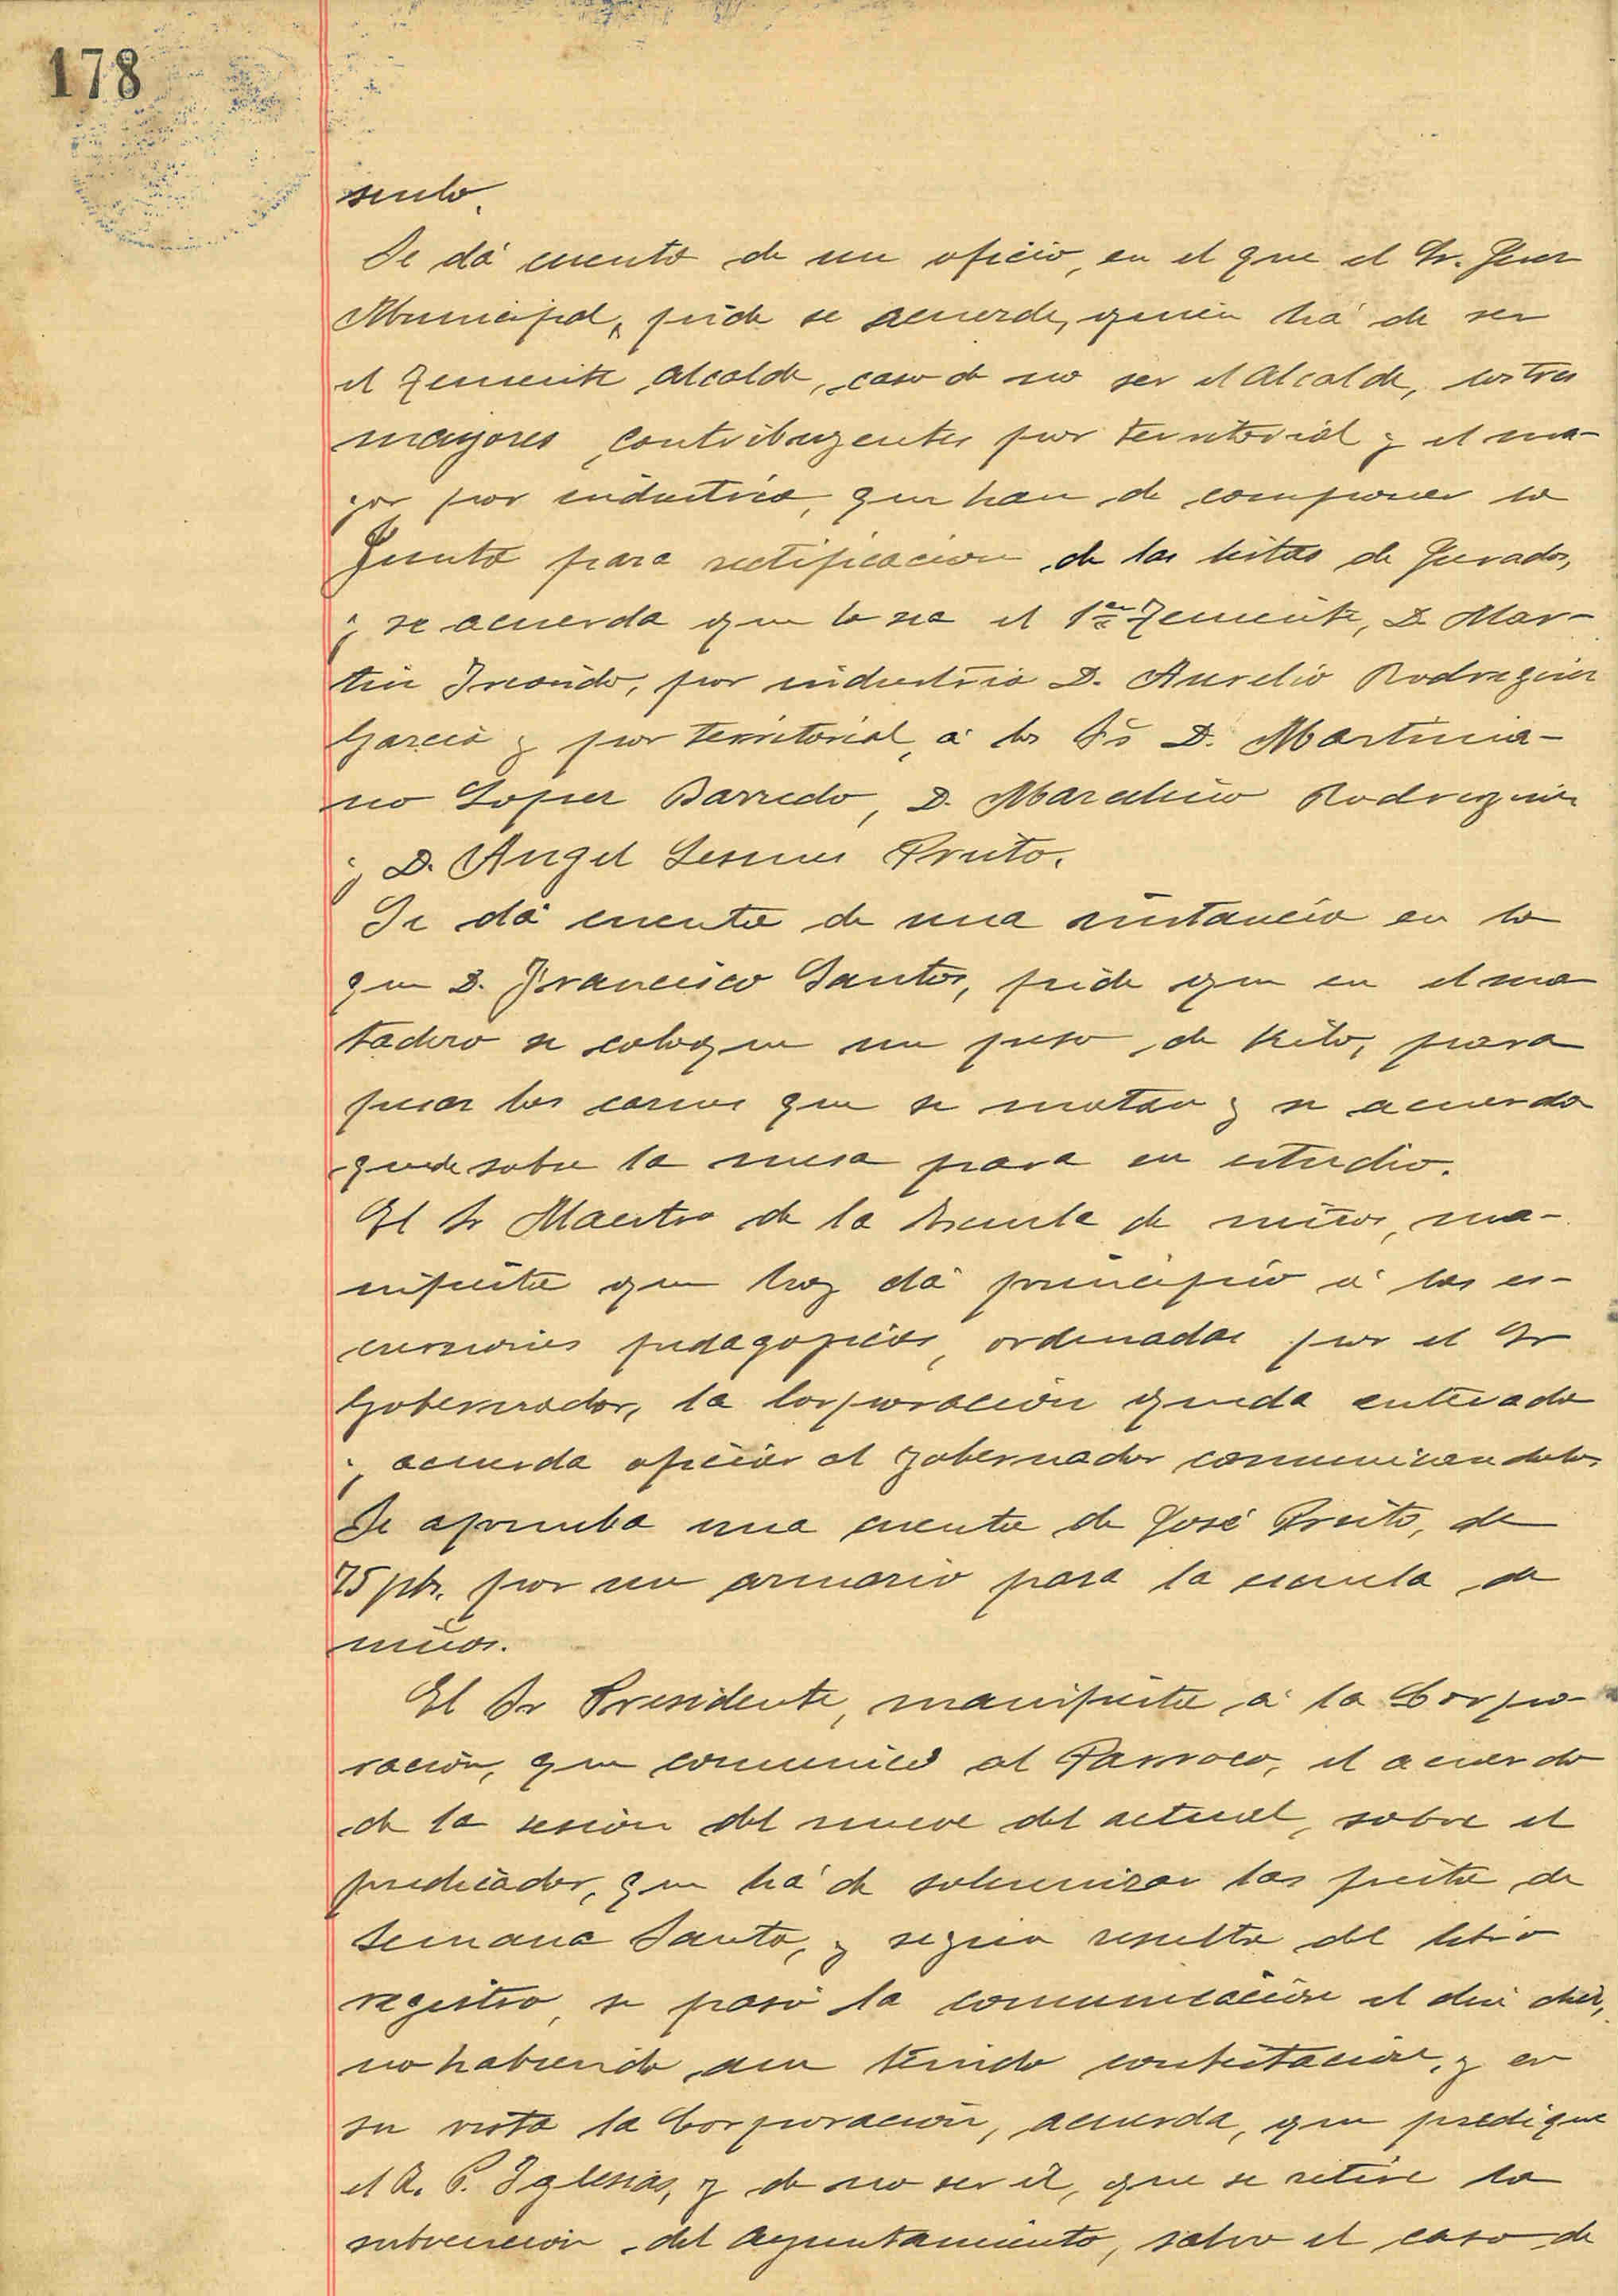 178
sulo.
Se dá cuenta de un oficio, en el que el Sr. Juez
Municipal, pide se acuerde, quien há de ser
el Teniente Alcalde, caso de no ser el Alcalde, los tres
mayores contribuyentes por territorial y el ma-
yor por industria, que han de componer la
Junta para rectificacion de las listas de Jurados,
y se acuerda que lo sea el 1er Teniente, D. Mar-
tin, por industria D. Aurelio Rodriguez
Garcia y por territorial, á los Srs D. Martinia-
no Lopez Barredo, D. Marcelino Rodriguez
y D. Angel Lesmes Prieto.
Se dá cuenta de una instancia en la
que D. Francisco Santos, pide que en el ma
tadero se coloque un peso de kilos, para
pesar las carnes que se matan y se acuerda
quede sobre la mesa para su estudio.
El Sr Maestro de la Escuela de niños, ma-
nifiesta que hoy dá principio á las es-
cursiones pedagogicas, ordenadas por el Sr
Gobernador, la Corporación queda enterada
y acuerda oficiar al Gobernador comunicandolo.
Se aprueba una cuenta de José Prieto, de
75 pts. por un armario para la escuela de
niños.
El Sr Presidente, manifiesta á la Corpo-
ración, que comunicó al Parroco, el acuerdo
de la sesión del nueve del actual, sobre el
predicador, que há de solemnizar las fiestas de
Semana Santa, y según resulta del libro
registro, se pasó la comunicación el dia diez,
no habiendo aun tenido contestación, y en
su vista la Corporación, acuerda, que predique
el R. P. Iglesias, y de no ser él, que se retire la
subvención del Ayuntamiento, salvo el caso de